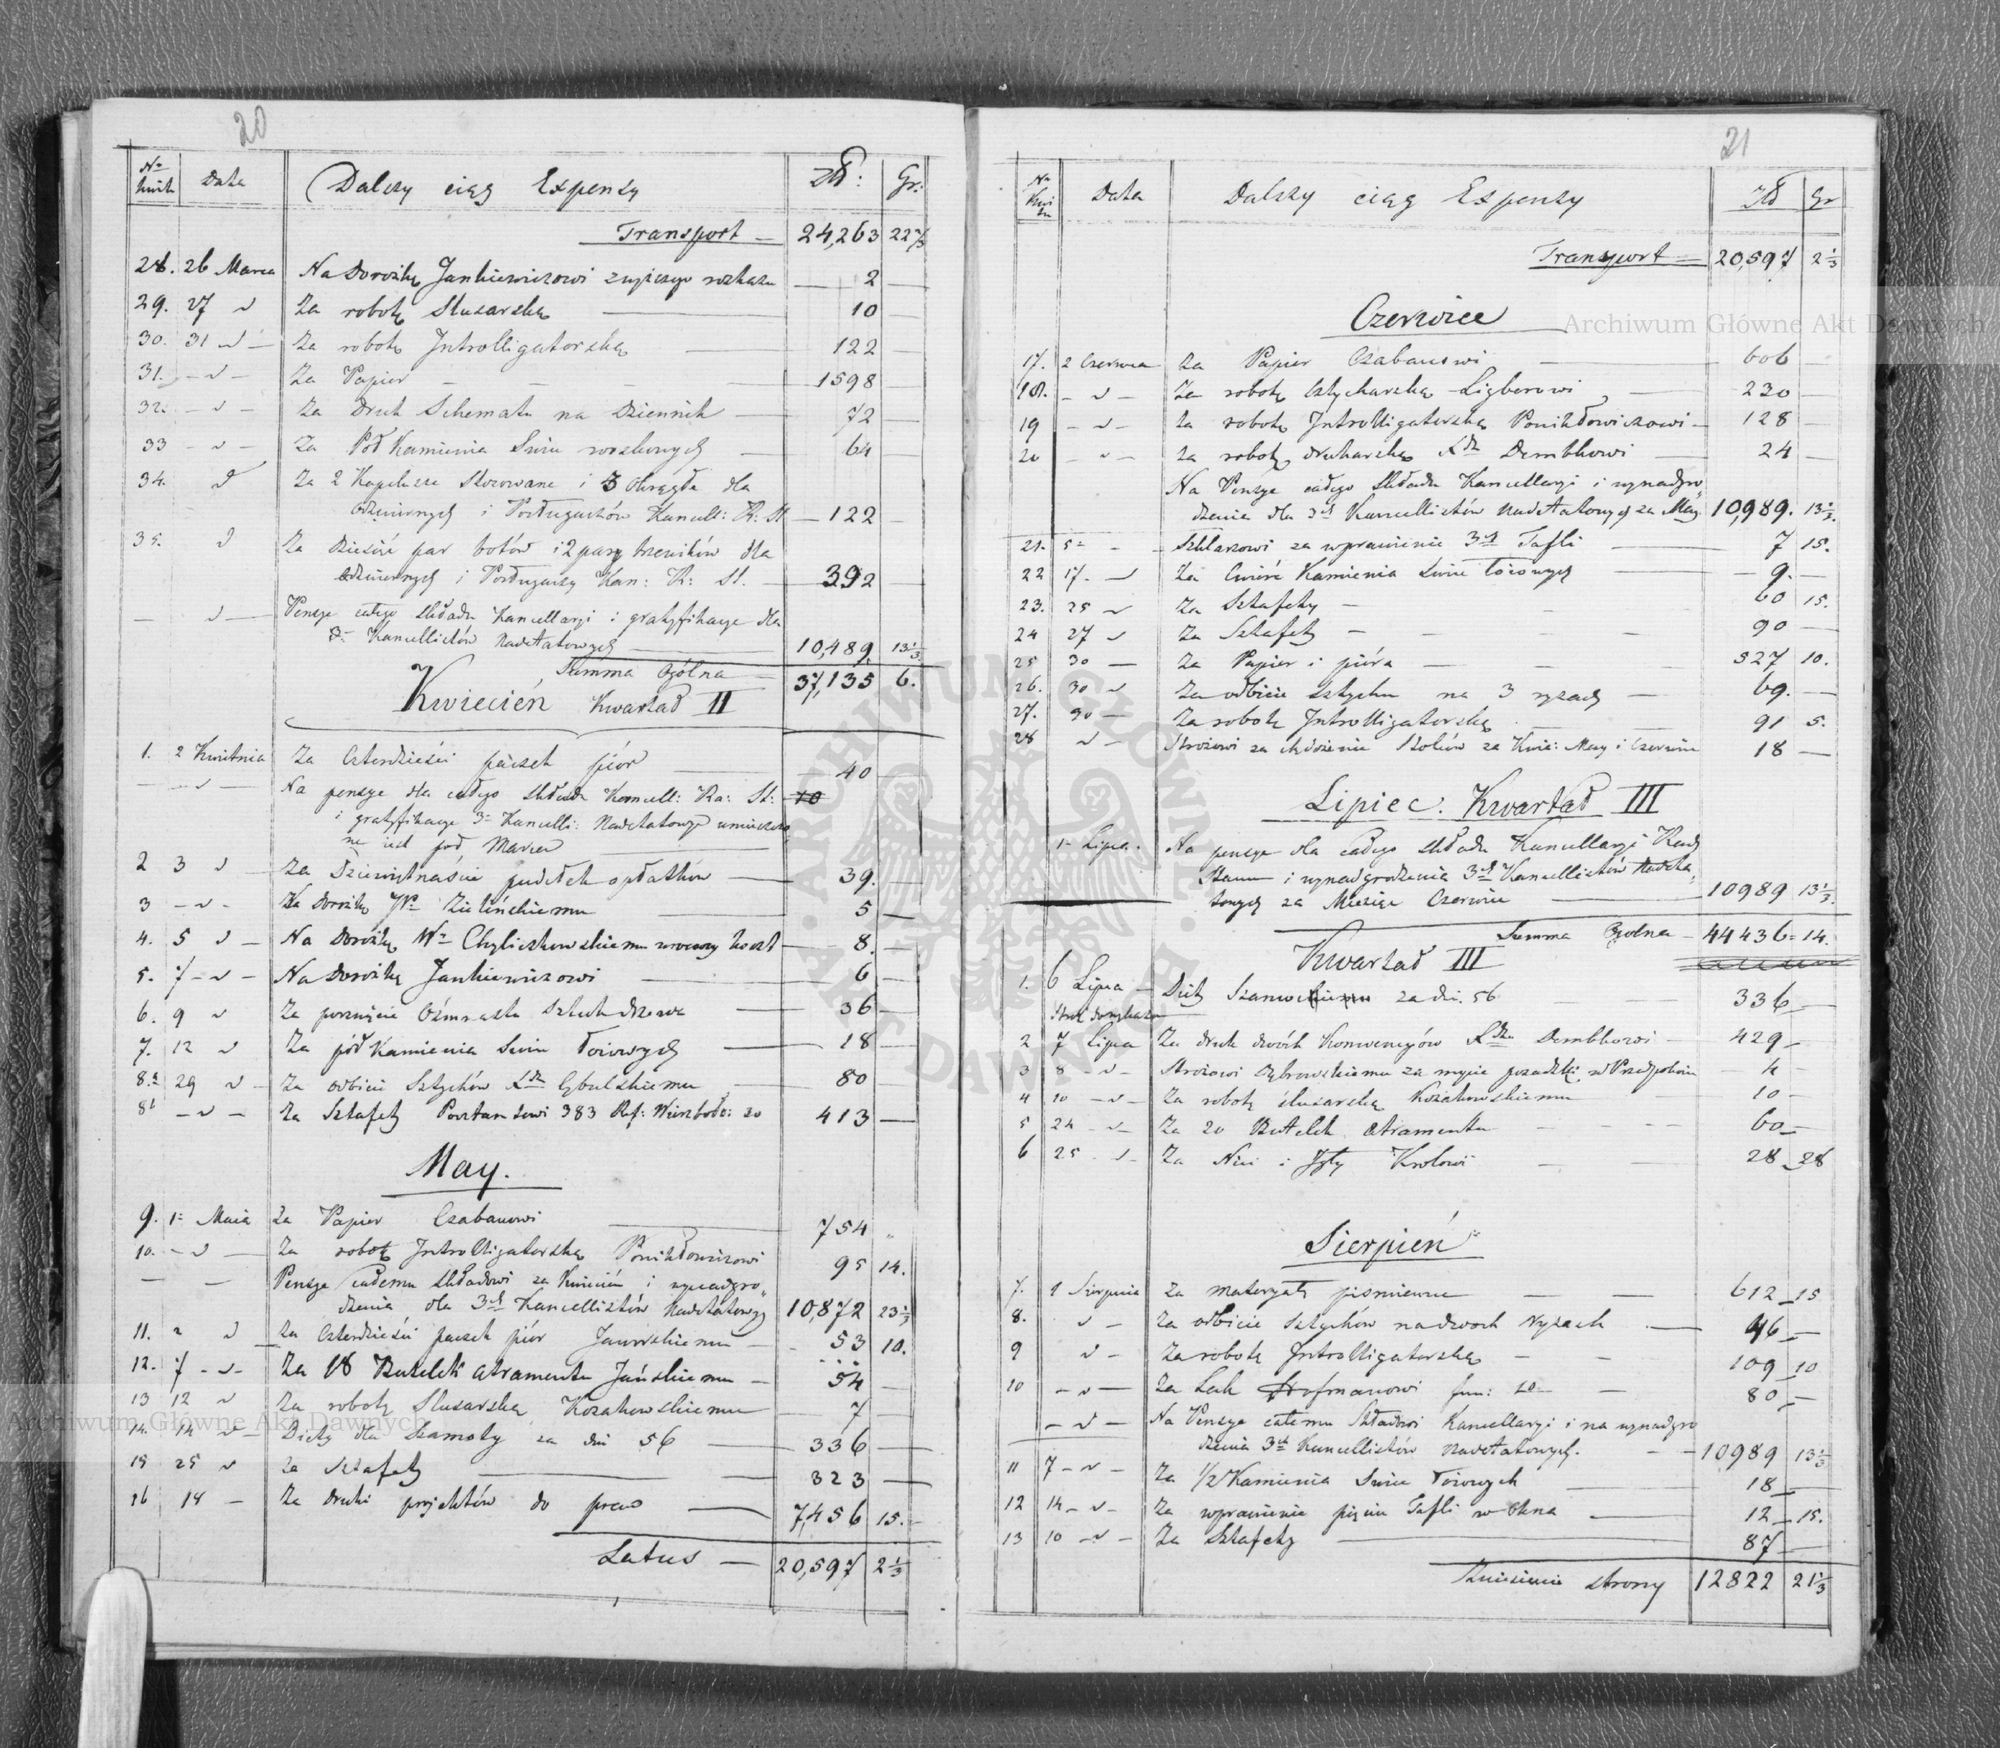 20
No kwit. Data Dalszy ciąg Expensy Zł: Gr:
Transport — 24,263 22 2/3
28. 26 Marca Na Dorożkę Jankiewiczowi z wyższego rozkazu — 2 —
29. 27 " Za robotę Slusarską — 10
30. 31 " — Za robotę Jntrolligatorską — 122 —
31. — " — Za Papier — 1598 —
32. — " — Za druk Schematu na Dziennik — 72 —
33 — " — Za Pół Kamienia Swiec — 64 —
34. " Za 2 Kapelusze Stosowane i 3 Okrągłe dla
Odźwiernych i Posługaczów Kancell: R: St — 122 —
35. " Za Dziesięć par botów i 2 pary trzewików dla
Odźwiernych i Posługaczy Kan: R: St. — 392 —
— " — Pensye całego składu Kancellaryi i gratyfikacye dla
3ch Kancellistów Nadetatowych — 10,489. 13 1/3
Summa Ogólna — 37,135 6.
Kwiecień Kwartał II
1. 2 Kwietnia Za Czterdzieści paczek piór — 40 —
— " — Na pensye dla całego składu Kancell: Ra: St: — 10
i gratyfikacye 3ch Kancelli: Nadetatowych umieszczo
ne jest pod Marcem
2 3 " Za Dziewiętnaście pudełek opłatków — 39. —
3 — " — Za Dorożkę Wo Zielińskiemu 5 —
4. 5 " — Na Dorożkę Wo Chyliczkowskiemu — 8. —
5. 7 — " — Na Dorożkę Jankiewiczowi — 6 —
6. 9 " Za porznięcie Ośmnastu sztuk drzewa — 36 —
7. 12 " Za pół Kamienia Swiec łoiowych — 18 —
8.a 29 " — Za odbicie Sztychów Xdzu Cybulskiemu — 80 —
8b — " — Za Sztafety Pocztamtowi 383 413 —
May.
9. 1. Maia Za Papier Czabanowi — 754 "
10. — " — Za robotę Jntrolligatorską Ponikłowiczowi 95 14.
— — Pensye całemu składowi za Kwiecień i wynadgro„
dzenia dla 3ch Kancellistów Nadetatowych 10,872 23 1/3
11. " " Za Czterdzieści paczek piór Jaworskiemu — 53 10.
12. 7 — " — Za 18 Butelek atramentu Jańskiemu — 54 —
13 12 " Za robotę Slusarską Kozakowskiemu — 7 —
14. 14 " — Diety dla Szamoty za dni 56 — 336 —
15 25 " Za Sztafety — 323 —
16 14 — Za druki projektów do praw — 7,456 15.
Latus — 20,597 2 1/3
21
No Kwitu Data Dalszy ciąg Expensy Zł Gr
Transport — 20,597 2 1/3
Czerwiec
17. 2 Czerwca Za Papier Czabanowi — 606 —
18. — " — Za robotę sztycharską Ligberowi — 230 —
19 — " — Za robotę Jntrolligatorską Ponikłowiczowi — 128 —
20 — " — Za robotę drukarską Xdzu Dembkowi — 24 —
Na Pensye całego składu Kancellaryi i wynadgro„
dzenia dla 3ch Kancellistów Nadetatowych za May 10,989. 13 1/3.
21. 5 — Szklarzowi za wprawienie 3ch Tafli — 7 15.
22 17. — " Za Cwierć Kamienia Swiec łoiowych — 9. —
23. 25 " Za Sztafety — 60 15.
24 27 " Za Sztafety — 90 —
25 30 — Za Papier i pióra — 527 10.
26. 30 " Za odbicie sztychu na 3 ryzach — 69. —
27. 30 — Za robotę Jntrolligatorską 91 5.
28 " — Strożowi za chędożenie Stołków za Kwie: May i Czerwiec 18 —
Lipiec. Kwartał III
1 Lipca. Na pensye dla całego składu Kancellaryi Rady
Stanu i wynadgrodzenia 3ch Kancellistów Nadeta„
towych za Miesiąc Czerwiec — 10989 13 1/3.
Summa Ogólna — 44436 = 14.
Kwartał III
1. 6 Lipca — Diety za dni 56 336 —
2 7 Lipca Za druk dwóch Konwencyów Xdzu Dembkowi — 429 —
3 8 — " — Strożowi Dąbrowskiemu za mycie posadzki w Przedpokoiu 4 —
4 10 — " — Za robotę slusarską Kozakowskiemu 10 —
5 24 — " — Za 20 Butelek Atramentu — 60 —
6 25 . " — Za Nici i Jgły Krolowi — 28 — 28
Sierpień
7. 1 Sierpnia Za materyały piśmienne — 612 — 15
8. " — Za odbicie Sztychów na dwoch ryzach — 46 —
9 " — Za robotę Jntrolligatorską — 109 — 10
10 — " — Za Lak Hofmanowi fun: 10 — 80 —
— " — Na Pensye całemu Składowi Kancellaryi i na wynadgro
dzenia 3ch Kancellistów Nadetatowych. — 10989 13 1/3
11 7 — " — Za 1/2 Kamienia Swiec łoiowych — 18 —
12 14 — " — Za wprawienie pięciu Tafli w okna — 12 — 15.
13 10 — " — Za Sztafety — 87 —
Zniesienie strony 12822 21 1/3
Archiwum Główne Akt Dawnych
Archiwum Główne Akt Dawnych
ARCHIWUM GŁÓWNE AKT DAWNYCH